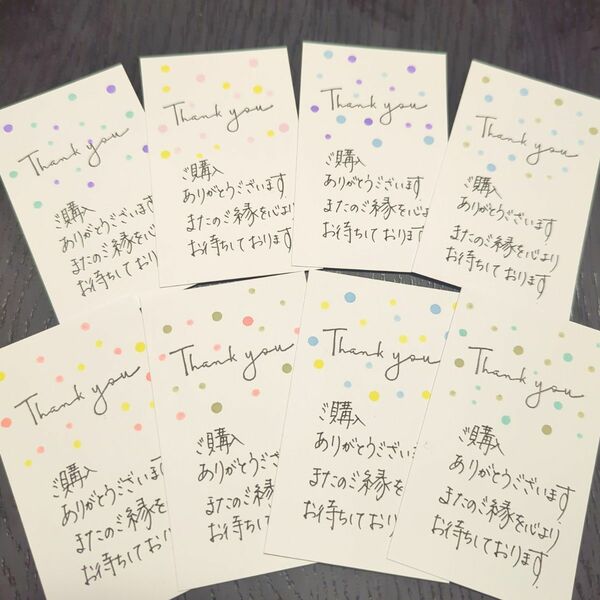 Thank you
ご購入
ありがとうございます
またのご縁を心より
お待ちしております
Thank you
ご購入
ありがとうございます
またのご縁を心より
お待ちしております
Thank you
ご購入
ありがとうございます
またのご縁を心より
お待ちしております
Thank you
ご購入
ありがとうございます
またのご縁を心より
お待ちしております
Thank you
ご購入
ありがとうございます
またのご縁を
お待ちしており
Thank you
ご購入
ありがとうござい
またのご縁を
お待ちしており
Thank you
ご購入
ありがとうございます
またのご縁を
お待ちしており
Thank you
ご購入
ありがとうございます
またのご縁を心より
お待ちしております.